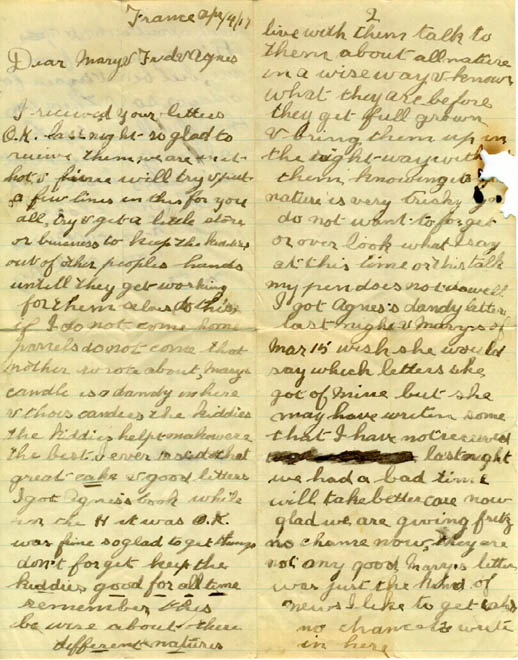 France Apr/4/17
Dear Mary & Fred & Agnes
I recieved your letters
O.K. last night so glad to
reciive them, we are
hot & fine will try & put
a few lines in this for you
all, try & get a little store
or business to keep the kiddies
out of other peoples hands
untill they get working
for them selves do this
if I do not come home
parrels do not come that
mother wrote about, Marys
candle is a dandy in here
& thois candies the kiddies
the kiddies help make were
the best I ever that
great cake & good letters
I got Agness book while
in the H it was O.K.
was fine so glad to get things
don't forget keep the
kiddies good for all time
remember this
be wise about there
different natures
2
live with them talk to
them about all nature
in a wise way & know
what they are before
they get full grown
& bring them up in
the right way with
them knowing it
nature is very tricky
do not want to forget
or over look what I say
at this time or this talk
my pen does not
I got Agnes's dandy letter
last night & Marys of
Mar 15 wish she would
say which letters she
got of mine but she
may have writen some
that I have not recieved
last night
we had a bad time
will take better care now
glad we are giving fritz
no chance now, they are
not any good Mary's letter
was just the kind of
news I like to get
no chance to write
in here